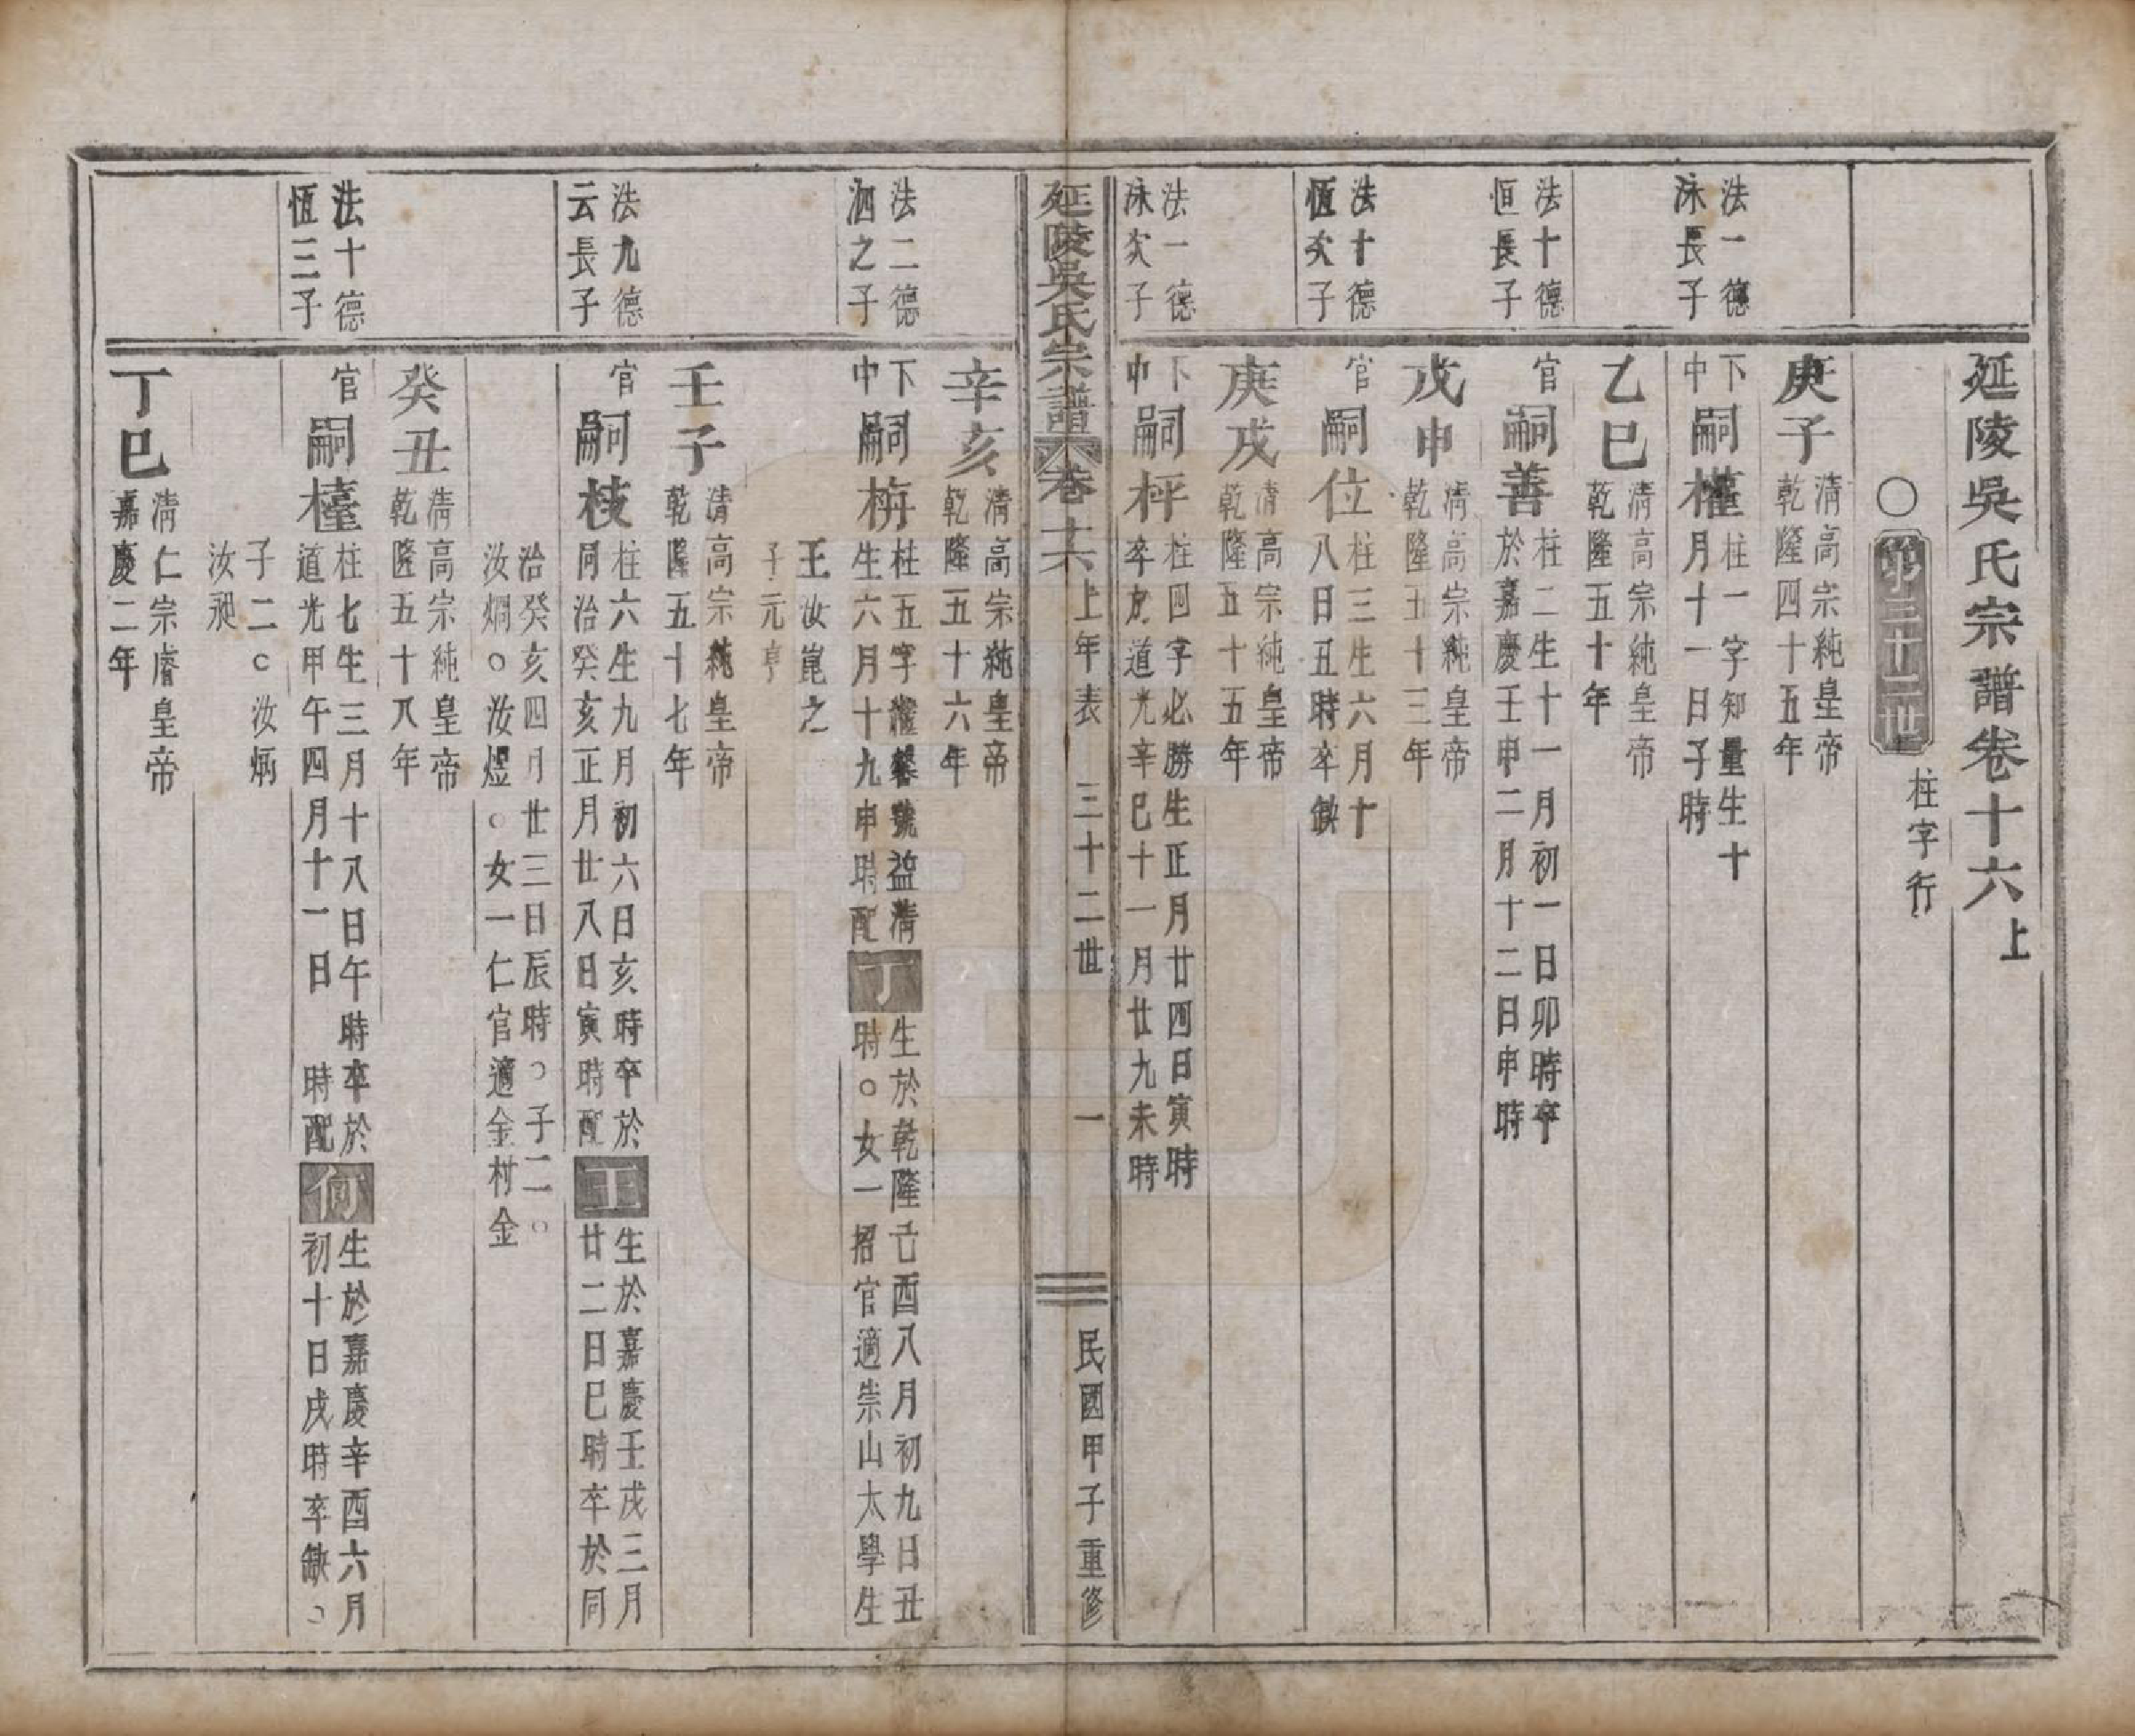 延陵吳氏宗譜卷十六上
〇第三十二世柱字行
庚子清高宗純皇帝
乾隆四十五年
法一德
泳長子
下中嗣權柱一字知量生十
月十一日子時
乙巳清高宗純皇帝
乾隆五十年
法十德
恒長子
官嗣善柱二生十一月初一日卯時卒
於嘉慶壬申二月十二日申時
戊申清高宗純皇帝
乾隆五十三年
法十德
恆次子
官嗣位柱三生六月十
八日丑時卒缺
庚戌清高宗純皇帝
乾隆五十五年
法一德
泳次子
下中嗣枰柱四字必勝生正月廿四日寅時
卒於道光辛巳十一月廿九未時
延陵吳氏宗譜卷十六上年表 三十二世 一 民國甲子重修
辛亥清高宗純皇帝
乾隆五十六年
法二德
泗之子
下中嗣栴柱五字馨號益清
生六月十九申時配
丁生於乾隆己酉八月初九日丑
時○女一招官適崇山太學生
王汝崑之
子元亨
壬子清高宗純皇帝
乾隆五十七年
法九德
云長子
官嗣枝柱六生九月初六日亥時卒於
同治癸亥正月廿八日寅時配
王生於嘉慶壬戌三月
廿二日巳時卒於同
治癸亥四月廿三日辰時○子二○
汝烱○汝煜○女一仁官適金村金
癸丑清高宗純皇帝
乾隆五十八年
法十德
恆三子
官嗣檯柱七生三月十八日午時卒於
道光甲午四月十一日 時配
何生於嘉慶辛酉六月
初十日戌時卒缺○
子二○汝炳
汝昶
丁巳清仁宗睿皇帝
嘉慶二年